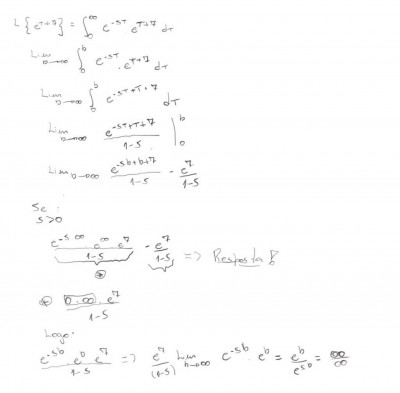 L{e^{T+7}} = ∫_0^∞ e^{-ST} e^{T+7} dT
Lim_{b→∞} ∫_0^b e^{-ST} . e^{T+7} dT
Lim_{b→∞} ∫_0^b e^{-ST+T+7} dT
Lim_{b→∞} e^{-ST+T+7}/(1-S) |_0^b
Lim_{b→∞} e^{-Sb+b+7}/(1-S) - e^7/(1-S)
Se:
S>0
e^{-S∞} . e^∞ . e^7/(1-S) - e^7/(1-S) => Resposta!
* 0.∞ . e^7/(1-S)
Logo:
e^{-Sb} . e^b . e^7/(1-S) => e^7/(1-S) Lim_{b→∞} e^{-Sb} . e^b = e^b/e^{Sb} = ∞/∞